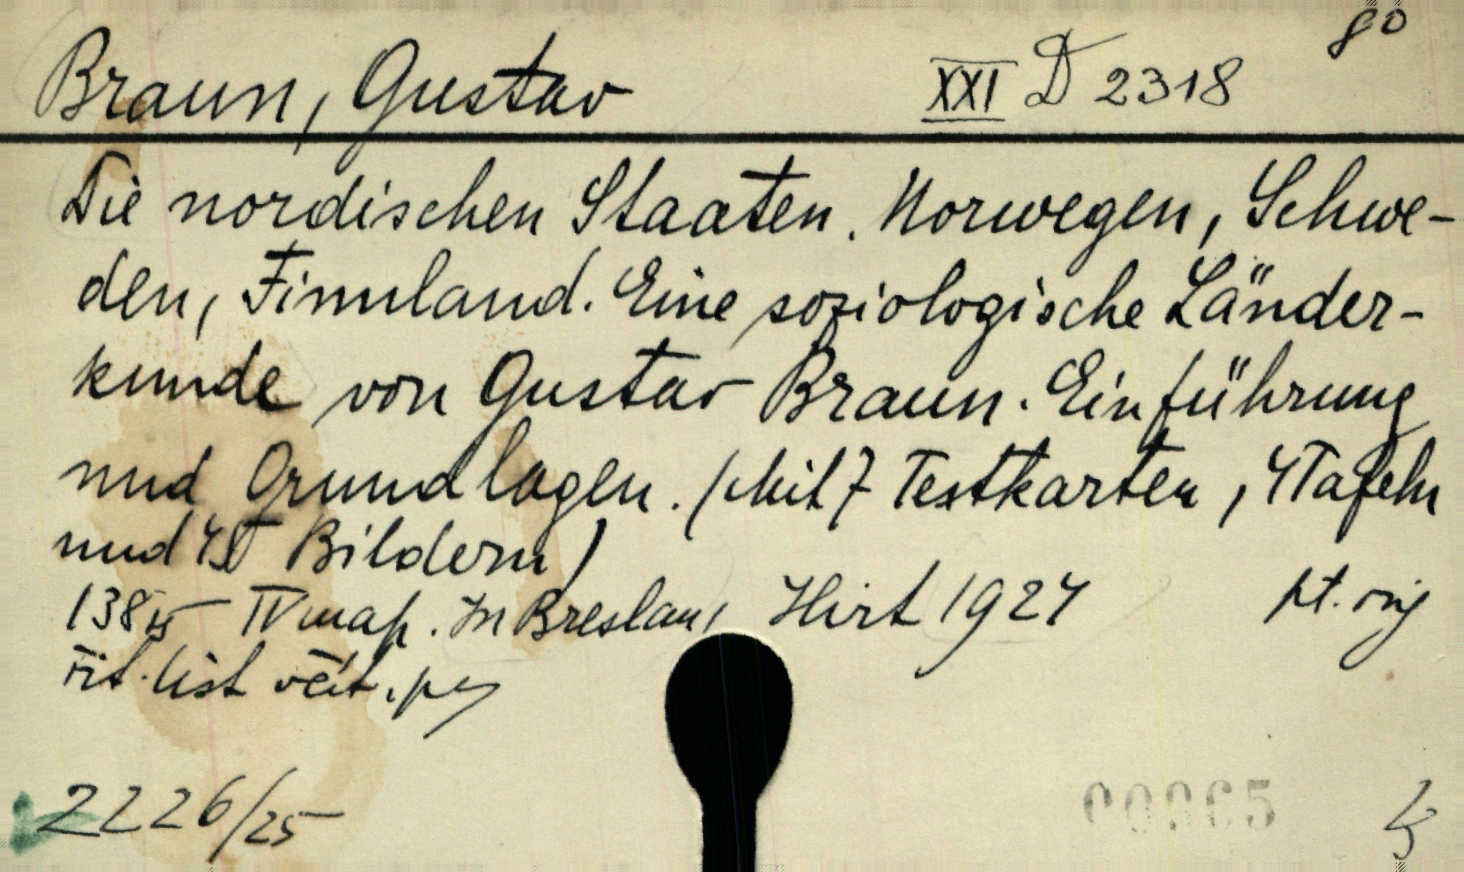 80
Braun, Gustav XXI D 2318
Die nordischen Staaten. Norwegen, Schwe-
den, Finnland. Eine soziologische Länder-
kunde von Gustav Braun. Einführung
und Grundlagen. (Mit 7 Textkarten, 4 Tafeln
und Bildern)
138 IV map. In Breslau, Hirt 1924
list
2226/25